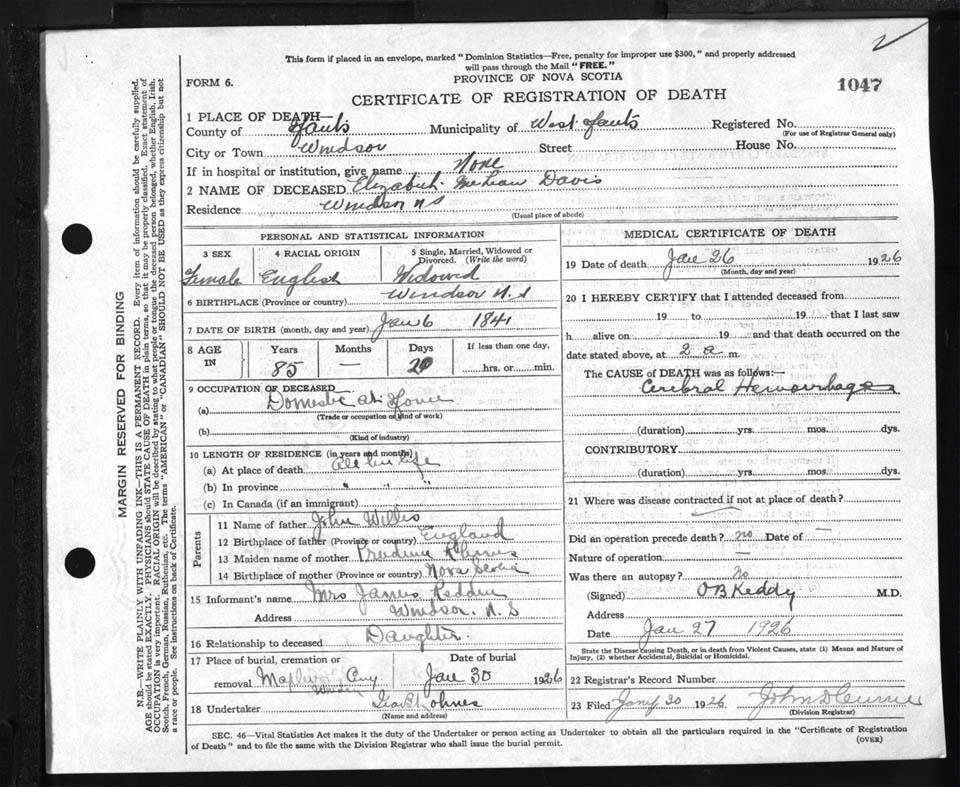 2
This form if placed in an envelope, marked "Dominion Statistics—Free, penalty for improper use $300," and properly addressed
will pass through the Mail "FREE."
FORM 6.
PROVINCE OF NOVA SCOTIA
1047
CERTIFICATE OF REGISTRATION OF DEATH
1 PLACE OF DEATH—
County of Hants Municipality of West Hants Registered No.
(For use of Registrar General only)
City or Town Windsor Street House No.
If in hospital or institution, give name None
2 NAME OF DECEASED Elizabeth McLean Davis
Residence Windsor N S
(Usual place of abode)
PERSONAL AND STATISTICAL INFORMATION
3 SEX 4 RACIAL ORIGIN 5 Single, Married, Widowed or
Divorced. (Write the word)
Female English Widowed
6 BIRTHPLACE (Province or country) Windsor N. S
7 DATE OF BIRTH (month, day and year) Jan 6 1841
8 AGE IN Years Months Days If less than one day,
85 — 20 hrs. or min.
9 OCCUPATION OF DECEASED
(a) Domestic at Home
(Trade or occupation or kind of work)
(b)
(Kind of industry)
10 LENGTH OF RESIDENCE (in years and months)
(a) At place of death All her life
(b) In province " " "
(c) In Canada (if an immigrant)
Parents
11 Name of father John Willis
12 Birthplace of father (Province or country) England
13 Maiden name of mother
14 Birthplace of mother (Province or country) Nova Scotia
15 Informant's name Mrs James Redden
Address Windsor. N. S
16 Relationship to deceased Daughter.
17 Place of burial, cremation or Date of burial
removal Jan 30 1926
18 Undertaker
(Name and address)
MEDICAL CERTIFICATE OF DEATH
19 Date of death Jan 26 1926
(Month, day and year)
20 I HEREBY CERTIFY that I attended deceased from
19 to 19 that I last saw
h alive on 19 and that death occurred on
date stated above, at 2 a m.
The CAUSE of DEATH was as follows:—
Cerebral Hemorrhage
(duration) yrs. mos. dys.
CONTRIBUTORY
(duration) yrs. mos. dys.
21 Where was disease contracted if not at place of death?
Did an operation precede death? no Date of —
Nature of operation —
Was there an autopsy? no
(Signed) O B Keddy M.D.
Address
Date Jan 27 1926
State the Disease causing Death, or in death from Violent Causes, state (1) Means and Nature of
Injury, (2) whether Accidental, Suicidal or Homicidal.
22 Registrar's Record Number
23 Filed Jany 30 1926
(Division Registrar)
SEC. 46—Vital Statistics Act makes it the duty of the Undertaker or person acting as Undertaker to obtain all the particulars required in the "Certificate of Registration
of Death" and to file the same with the Division Registrar who shall issue the burial permit.
(OVER)
MARGIN RESERVED FOR BINDING
N.B.—WRITE PLAINLY WITH UNFADING INK—THIS IS A PERMANENT RECORD. Every item of information should be carefully supplied.
AGE should be stated EXACTLY. PHYSICIANS should STATE CAUSE OF DEATH in plain terms, so that it may be properly classified. Exact statement of
OCCUPATION is very important. RACIAL ORIGIN will be described by stating to what people or tongue the deceased person belonged, whether English, Irish,
Scotch, French, German, Russian, Ruthenian, etc. The terms "AMERICAN" or "CANADIAN" SHOULD NOT BE USED as they express citizenship but not
a race or people. See instructions on back of Certificate.